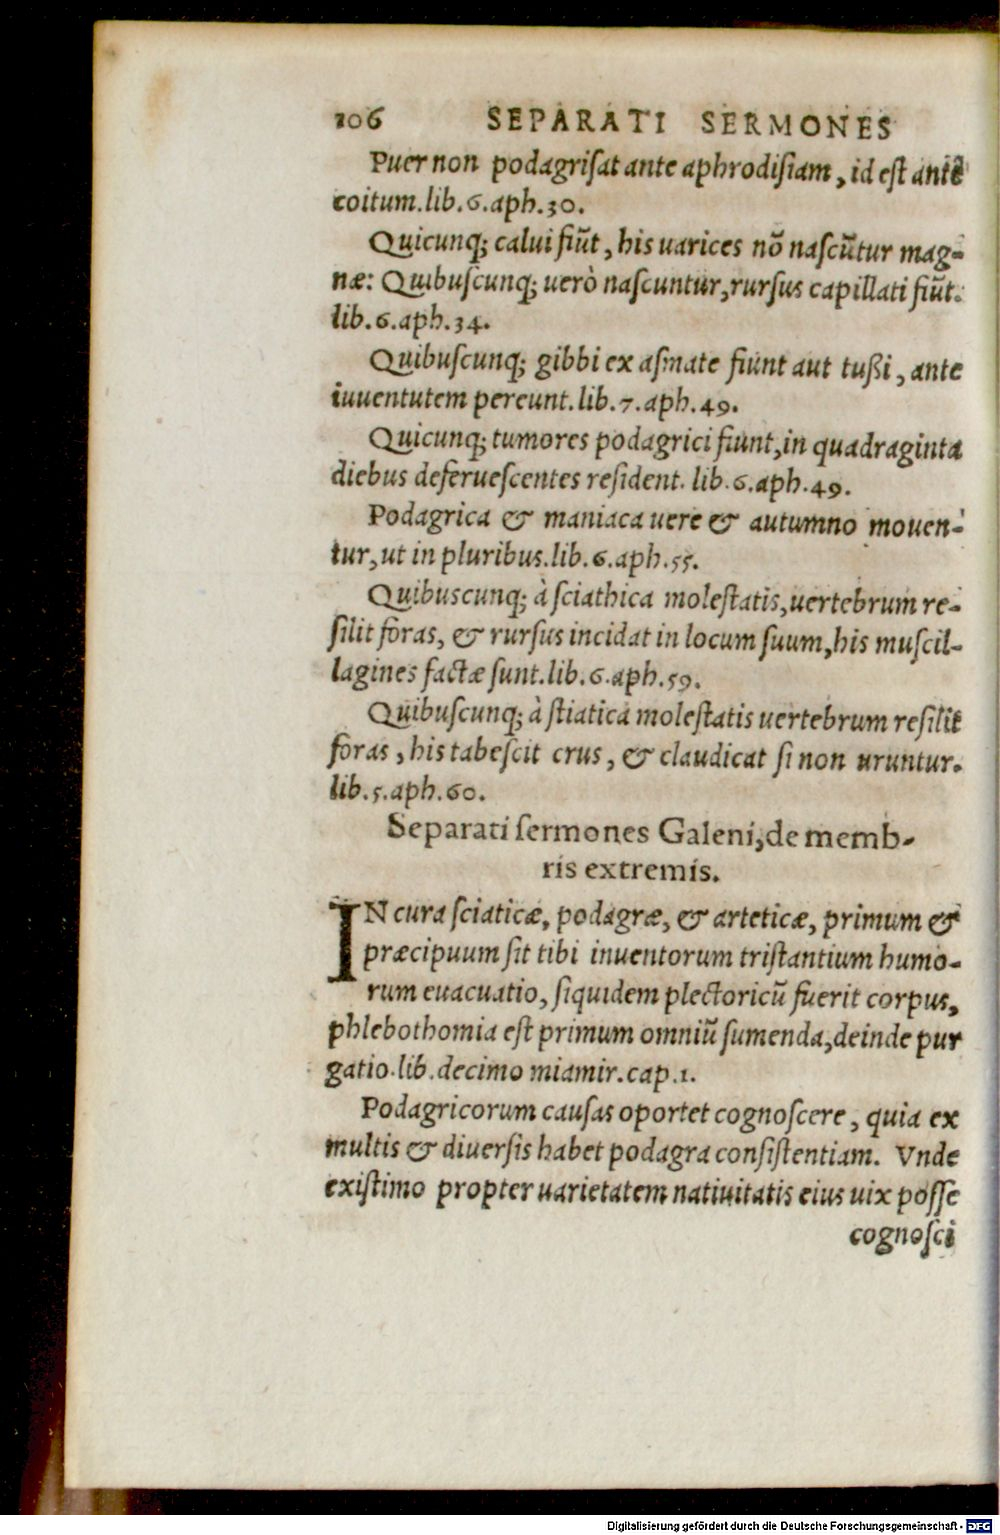 106 SEPARATI SERMONES
Puer non podagriſat ante aphrodiſiam, id eſt ante
coitum.lib.6.aph.30.
Quicunq; calui fiũt, his uarices nõ naſcũtur mag-
næ: Quibuſcunq; uerò naſcuntur, rurſus capillati fiũt.
lib.6.aph.34.
Quibuſcunq; gibbi ex aſmate fiunt aut tußi, ante
iuuentutem pereunt.lib.7.aph.49.
Quicunq; tumores podagrici fiunt, in quadraginta
diebus deferueſcentes reſident. lib.6.aph.49.
Podagrica & maniaca uere & autumno mouen-
tur, ut in pluribus.lib.6.aph.55.
Quibuscunq; à ſciathica moleſtatis, uertebrum re-
ſilit foras, & rurſus incidat in locum ſuum, his muſcil-
lagines factæ ſunt.lib.6.aph.59.
Quibuſcunq; à ſtiatica moleſtatis uertebrum reſilit
foras, his tabeſcit crus, & claudicat ſi non uruntur.
lib.5.aph.60.
Separati ſermones Galeni, de memb-
ris extremis.
IN cura ſciaticæ, podagræ, & arteticæ, primum &
præcipuum ſit tibi inuentorum triſtantium humo-
rum euacuatio, ſiquidem plectoricũ fuerit corpus,
phlebothomia eſt primum omniũ ſumenda, deinde pur
gatio.lib.decimo miamir.cap.1.
Podagricorum cauſas oportet cognoſcere, quia ex
multis & diuerſis habet podagra conſiſtentiam. Vnde
exiſtimo propter uarietatem natiuitatis eius uix poſſe
cognoſci
Digitalisierung gefördert durch die Deutsche Forschungsgemeinschaft - DFG